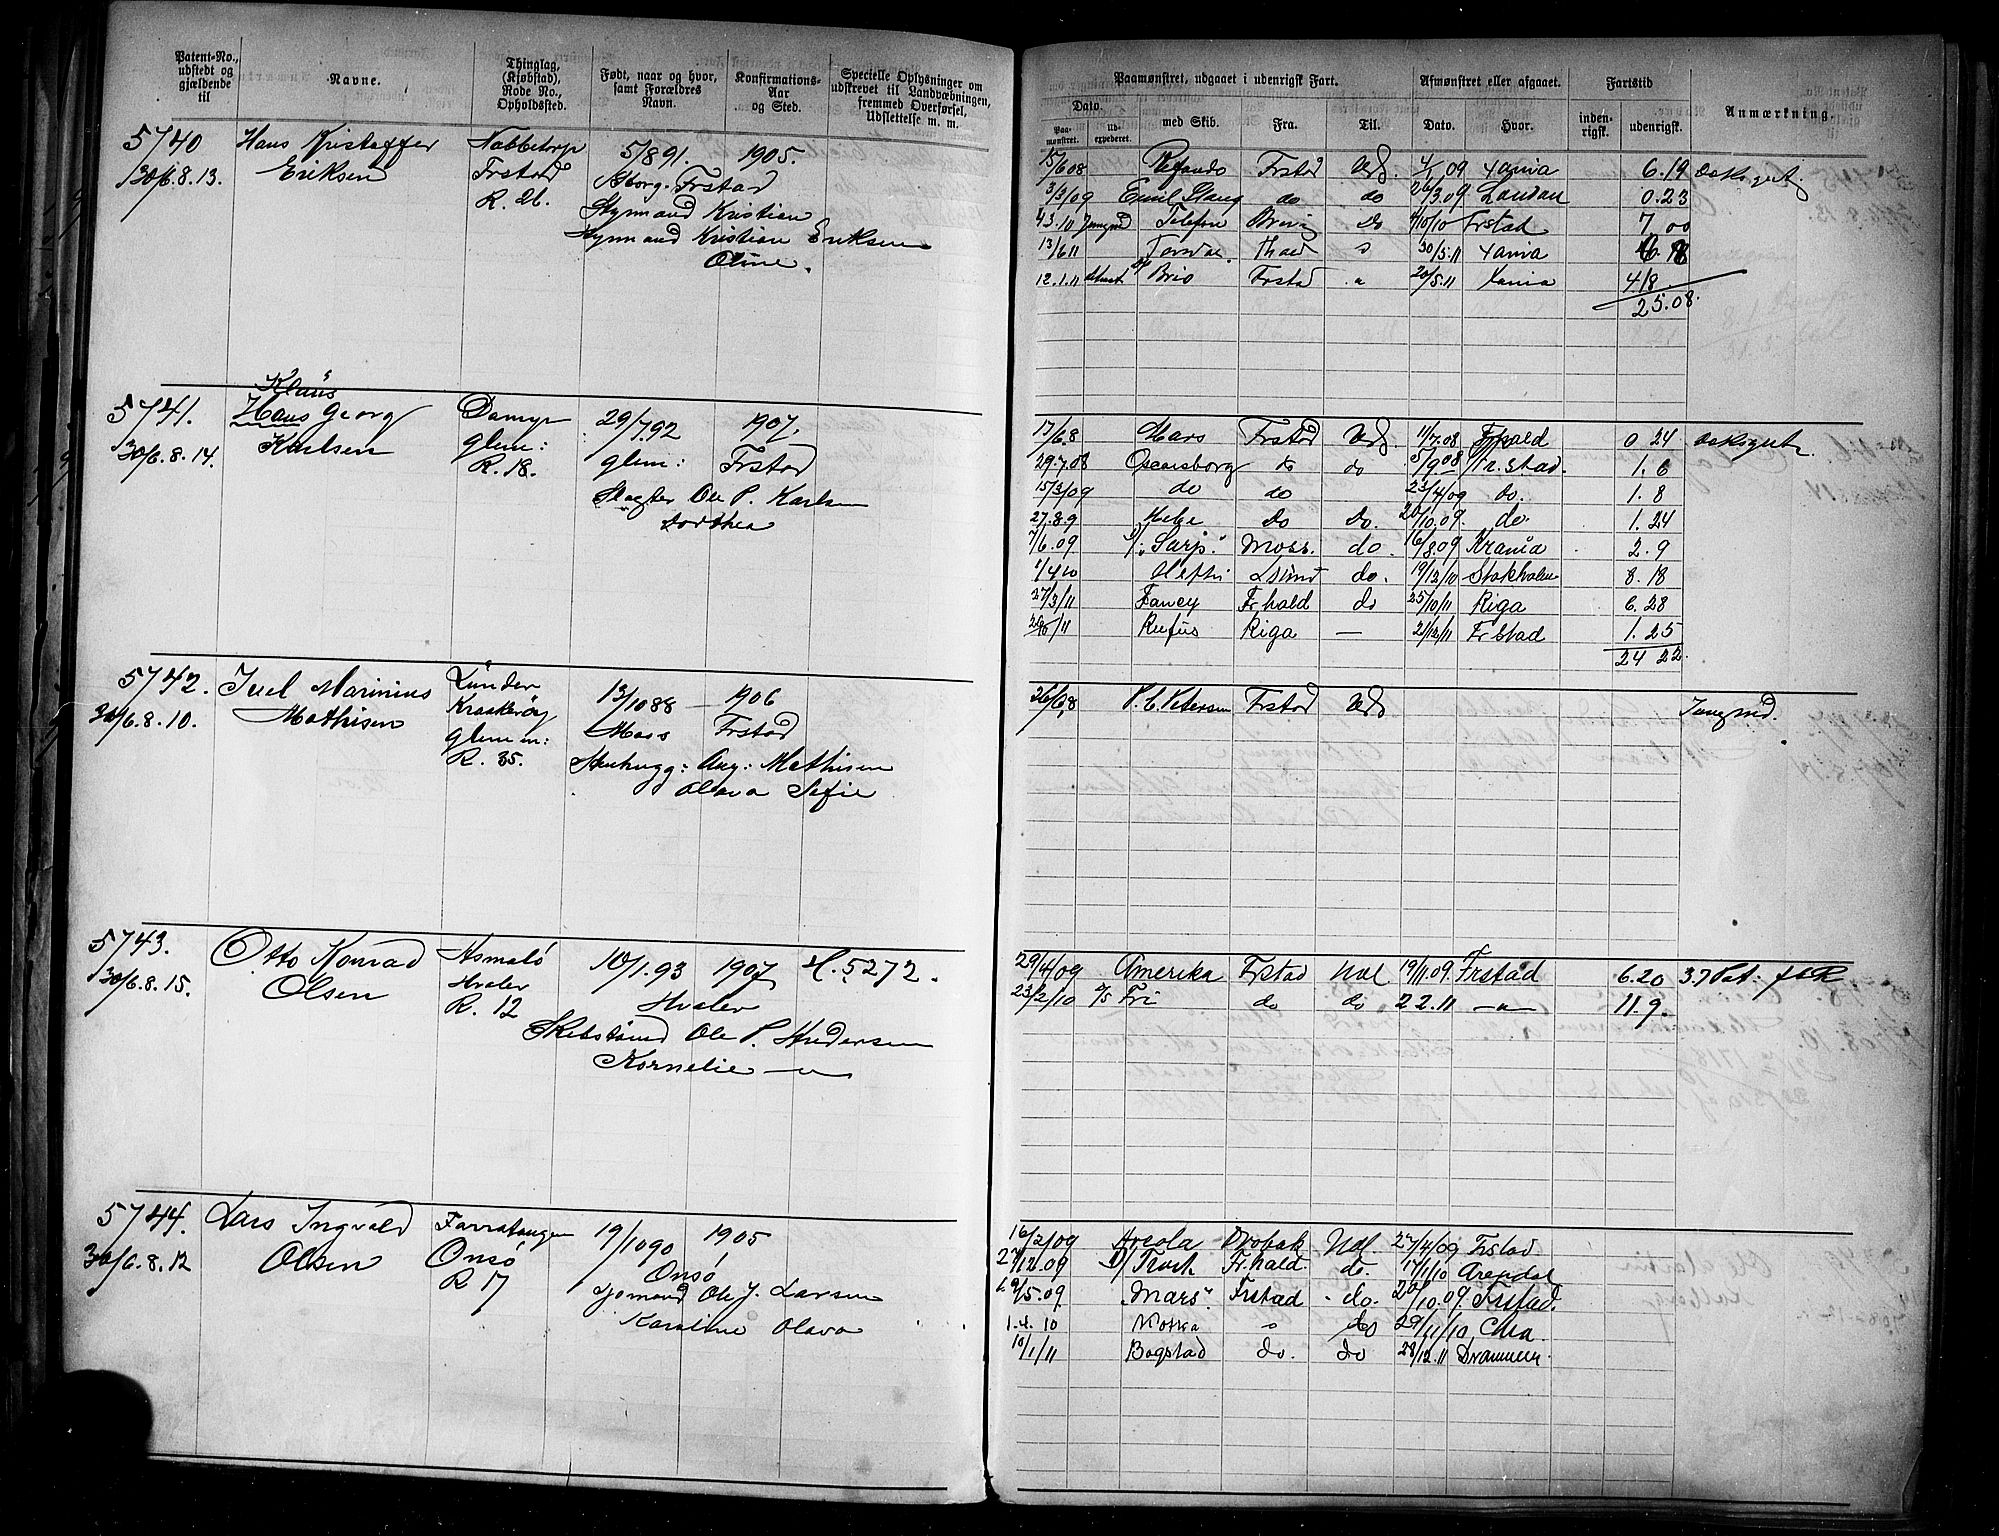 Patent-No., udstedt og gjældende til
Navne.
Thinglag, (Kjøbstad), Rode No., Opholdssted.
Født, naar og hvor, samt Forældres Navn.
Konfirmations-Aar og Sted.
Specielle Oplysninger om udskrevet til Landvæbningen, fremmed Overførsel, Udslettelse m. m.
Paamønstret, udgaaet i udenrigsk Fart.
Afmønstret eller afgaaet.
Fartstid
Anmærkning.
Dato.
Paamønstret. Udexpederet. med Skib. Fra. Til. Dato. Hvor. indenrigsk. udenrigsk.
5740 Hans Kristoffer Nabbetorp 5/8 91. 1905.
30/6.8.13. Eriksen Frstad Kborg. Frstad
R. 26. Kristian
Kristian Eriksen
Oline.
15/6 08 Frstad Udl. 4/1 09 Xania 6.19 Dæksgut
3/3/09 Emil Stang do do 26/3.09 London 0.23
Frstad 7 00
13/6 11 30/5.11 Xania
12.1.11 Brio Frstad 20/5.11 Xania 4.18
25.08.
Klaus
5741. Hans Georg Damyr 29/7.92 1907.
30/6.8.14. Karlsen glem: glem: Frstad
R. 18. Slagter Ole P. Karlsen
Dorthea
17/6 8 Mars Frstad Udl. 11/7.08 Frhald 0 24 Dæksgut
29.7.08 Oscarsborg do do 5/9.08 Fr.stad. 1. 6
15/3/09 do do 23/4/09 do. 1. 8
27.8.9 do do. 20/10.09. do. 1. 24
7/6.09 "Sarp." Moss. do. 16/8.09 Krania 2. 9
1/4 10 do. 19/12/10 Stokholm 8. 18
27/3/11 Fancy Fr.hald do 25/10/11 Riga 6. 28
26/10/11 Rufus Riga — 21/12/11 Frstad 1. 25
24 22.
5742. Juel Marinius Lunder 13/10 88 — 1906
30/6.8.10. Mathisen Kraakerøy Moss Frstad
glemm: Stenhugg: Aug: Mathisen
R. 35. Olava Sofie
26/6 8 P. C. Petersen Frstad Udl Jungmd.
5743. Otto Konrad Asmalø 10/1.93 1907 H. 5272.
30/6.8.15. Olsen Hvaler Hvaler
R. 12 Skibstømd Ole P. Andersen
Kornelie — „ —
29/4/09 Amerika Frstad Udl 19/11.09. Frstad 6.20 37 Pat.
23/2/10 Fri do do 22.11 — „ — 11. 9.
5744. Lars Ingvald Farratangen 19/10 90 1905
30/6.8.12 Olsen Onsø Onsø
R 17 Ole J. Larsen
Karoline Olava
16/2/09 Areola Drøbak Udl. 27/4/09 Frstad
27/12.09 Fr.hald. do. 17/1/10 Arendal
19/5.09 "Mars". Frstad do. 20/10.09. Frstad.
1.4.10 do 29/11/10. Chra.
10/1/11 Bogstad do. do 28/12.11 Drammen.